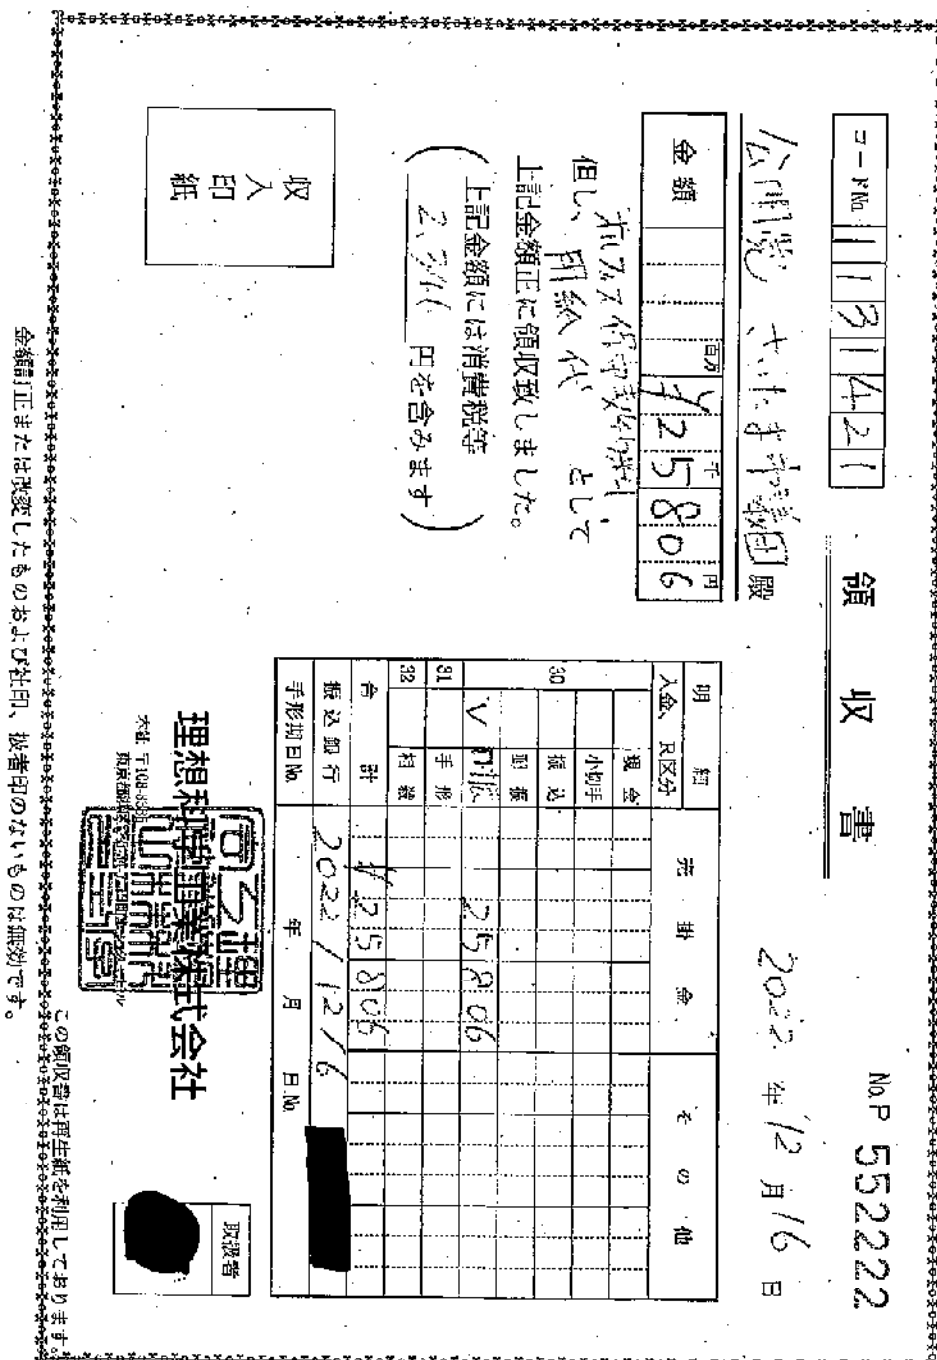 領収書
No.P 552222
コードNo. 11131421
2022年12月16日
公明党 さいたま市議団 殿
金額 百万 千 円
¥25806
但し、
用紙代 として
上記金額正に領収致しました。
上記金額には消費税等
円を含みます
収入
印
紙
明細 売掛金 その他
入金、区分
30 現金
小切手
振込
郵振
V 25806
31 手形
32 相殺
合計 ¥25806
振込銀行 2022/12/6
手形期日No. 年 月 日 No.
理想科学工業株式会社
本社 〒108-8385
取扱者
この領収書は再生紙を利用しております。
金額訂正または改変したものおよび社印、扱者印のないものは無効です。